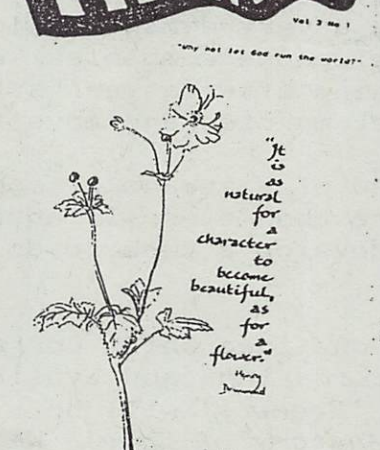 Vol 3 No 1
"Why not let God run the world?"
"It
is
as
natural
for
a
character
to
become
beautiful,
as
for
a
flower."
Henry
Drummond